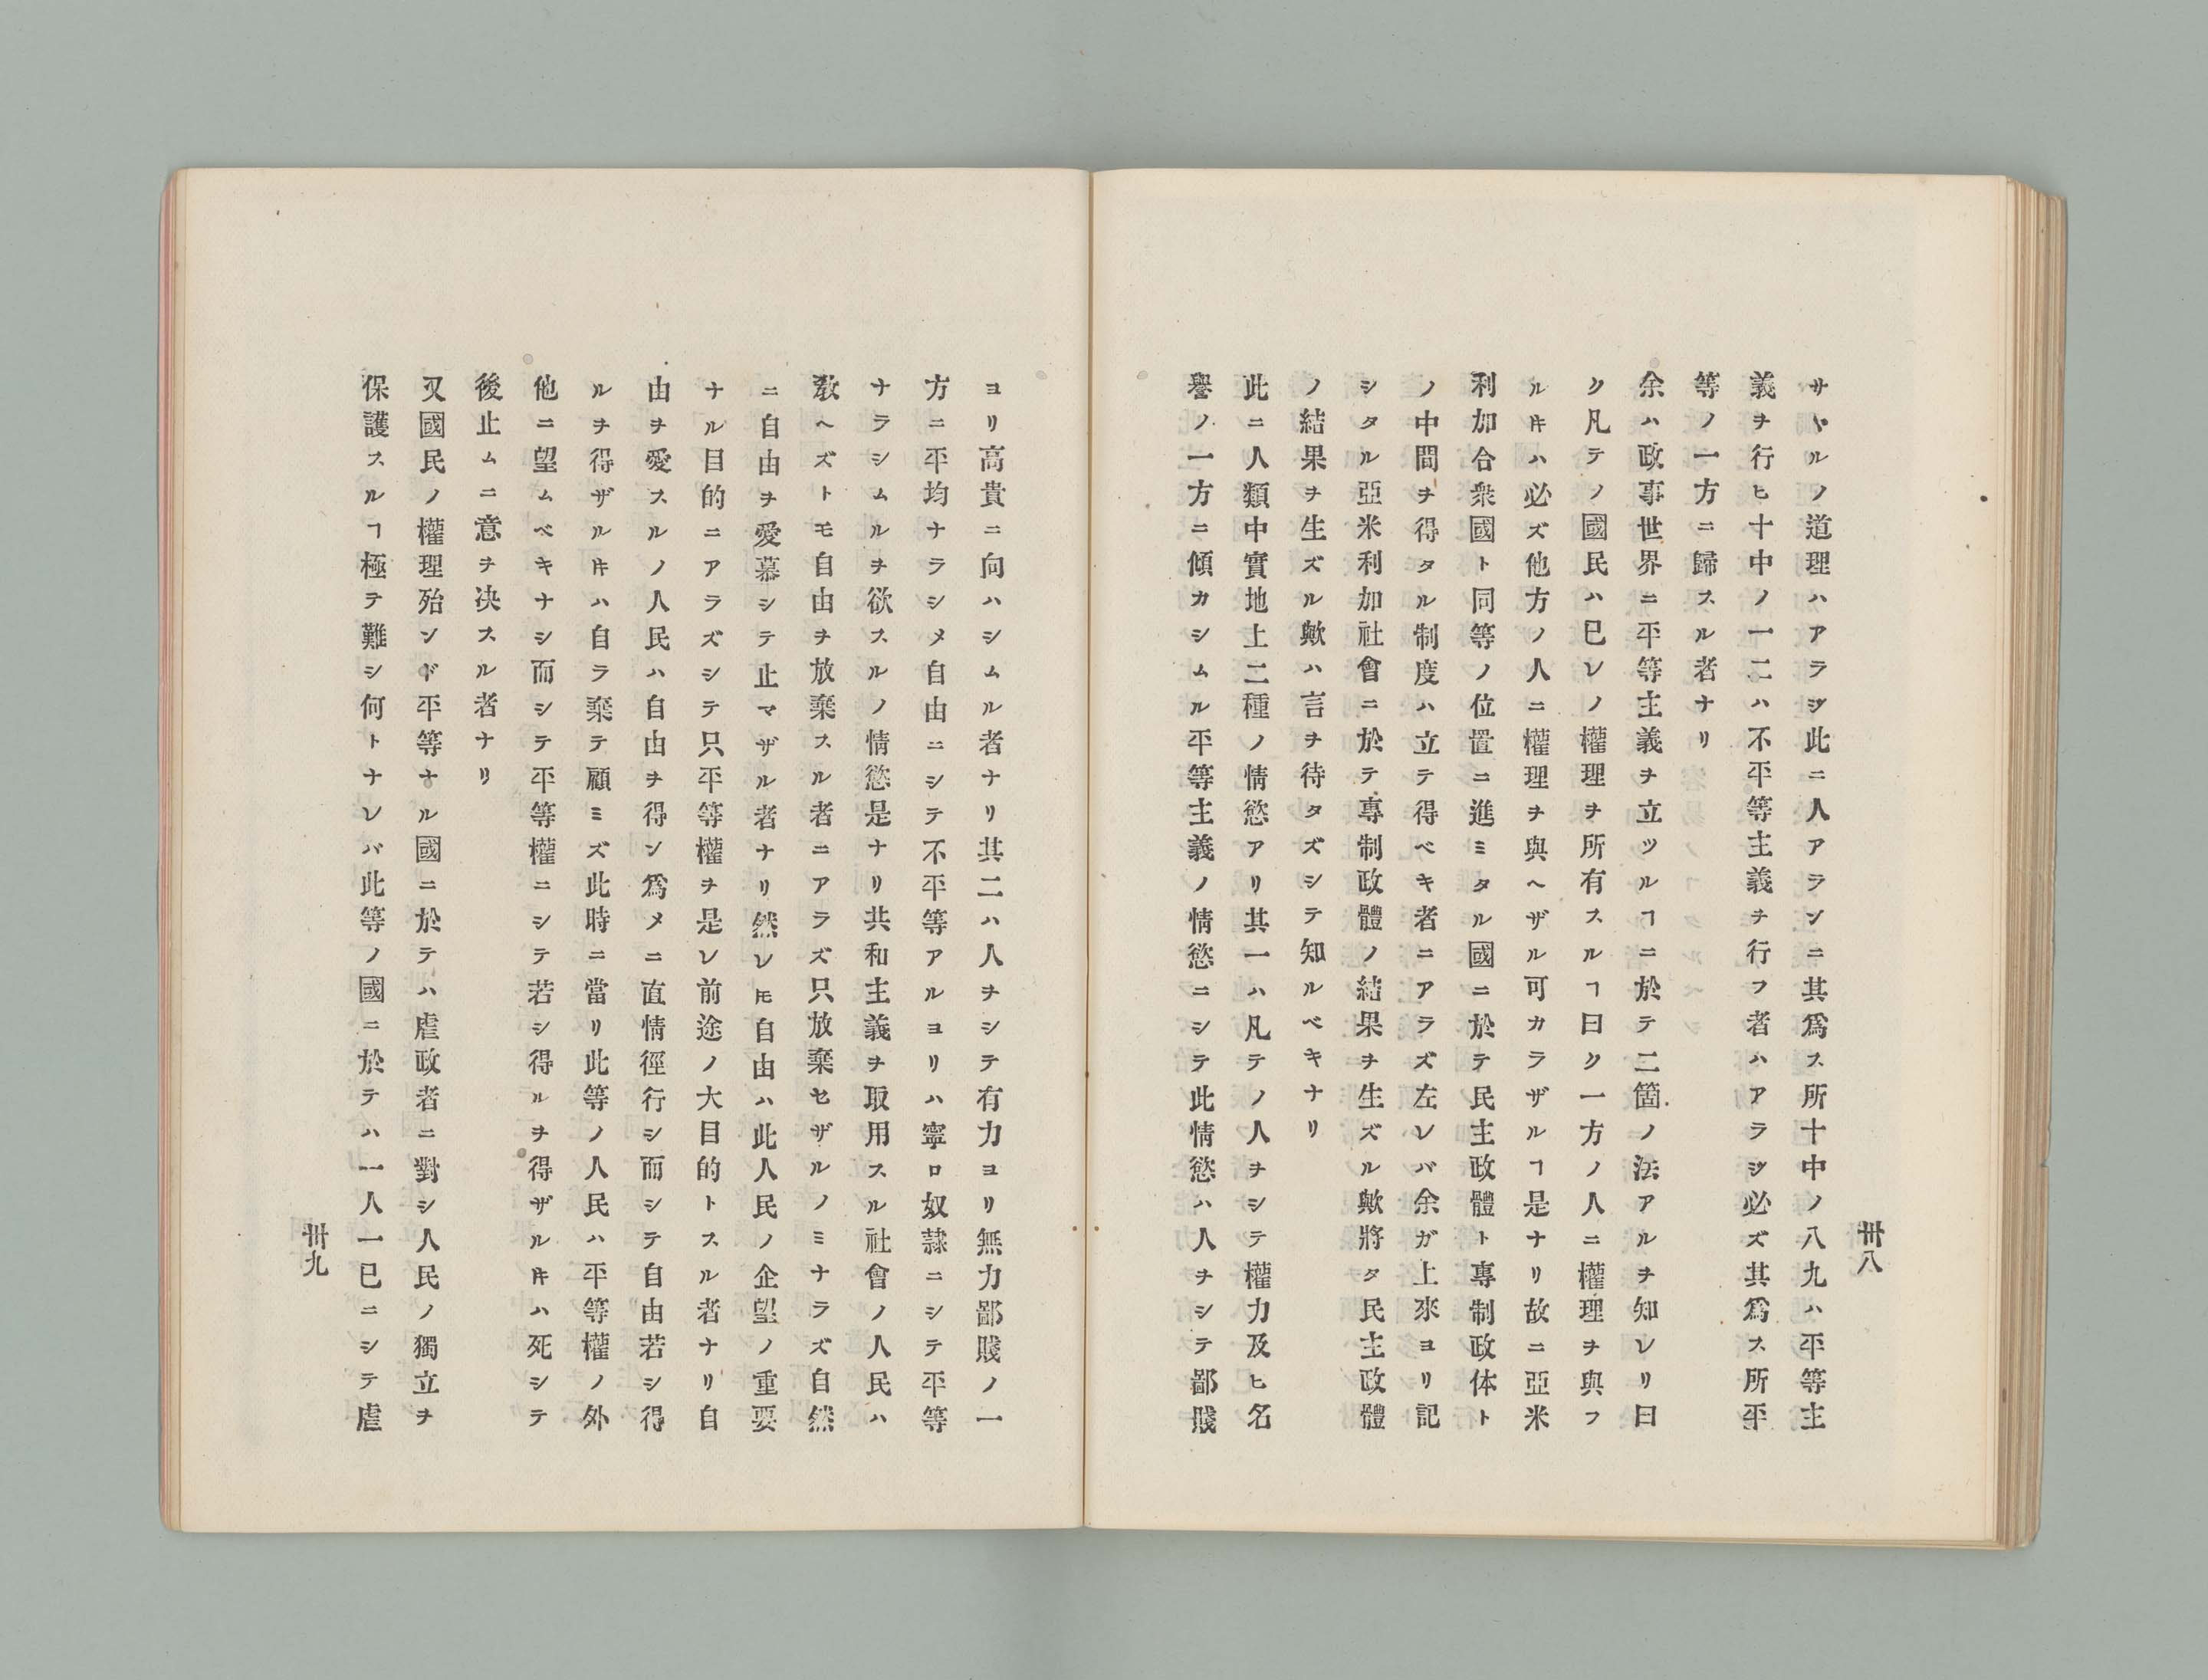 卅八
サヤルノ道理ハアラジ此ニ人アランニ其爲ス所十中ノ八九ハ平等主
義ヲ行ヒ十中ノ一二ハ不平等主義ヲ行フ者ハアラジ必ズ其爲ス所平
等ノ一方ニ歸スル者ナリ
余ハ政事世界ニ平等主義ヲ立ツルヿニ於テ二箇ノ法アルヲ知レリ曰
ク凡テノ國民ハ已レノ權理ヲ所有スルヿ曰ク一方ノ人ニ權理ヲ與フ
ルキハ必ズ他方ノ人ニ權理ヲ與ヘザル可カラザルヿ是ナリ故ニ亞米
利加合衆國ト同等ノ位置ニ進ミタル國ニ於テ民主政體ト專制政体ト
ノ中間ヲ得タル制度ハ立テ得ベキ者ニアラズ左レバ余ガ上來ヨリ記
シタル亞米利加社會ニ於テ專制政體ノ結果ヲ生ズル歟將タ民主政體
ノ結果ヲ生ズル歟ハ言ヲ待タズシテ知ルベキナリ
此ニ人類中實地上二種ノ情慾アリ其一ハ凡テノ人ヲシテ權力及ヒ名
譽ノ一方ニ傾カシムル平等主義ノ情慾ニシテ此情慾ハ人ヲシテ鄙賤
ヨリ高貴ニ向ハシムル者ナリ其二ハ人ヲシテ有力ヨリ無力鄙賤ノ一
方ニ平均ナラシメ自由ニシテ不平等アルヨリハ寧ロ奴隷ニシテ平等
ナラシムルヲ欲スルノ情慾是ナリ共和主義ヲ取用スル社會ノ人民ハ
敎ヘズトモ自由ヲ放棄スル者ニアラズ只放棄セザルノミナラズ自然
ニ自由ヲ愛慕シテ止マザル者ナリ然レ𪜈自由ハ此人民ノ企望ノ重要
ナル目的ニアラズシテ只平等權ヲ是レ前途ノ大目的トスル者ナリ自
由ヲ愛スルノ人民ハ自由ヲ得ン爲メニ直情徑行シ而シテ自由若シ得
ルヲ得ザルキハ自ラ棄テ顧ミズ此時ニ當リ此等ノ人民ハ平等權ノ外
他ニ望ムベキナシ而シテ平等權ニシテ若シ得ルヲ得ザルキハ死シテ
後止ムニ意ヲ决スル者ナリ
又國民ノ權理殆ンド平等ナル國ニ於テハ虐政者ニ對シ人民ノ獨立ヲ
保護スルヿ極テ難シ何トナレバ此等ノ國ニ於テハ一人一已ニシテ虐
卅九